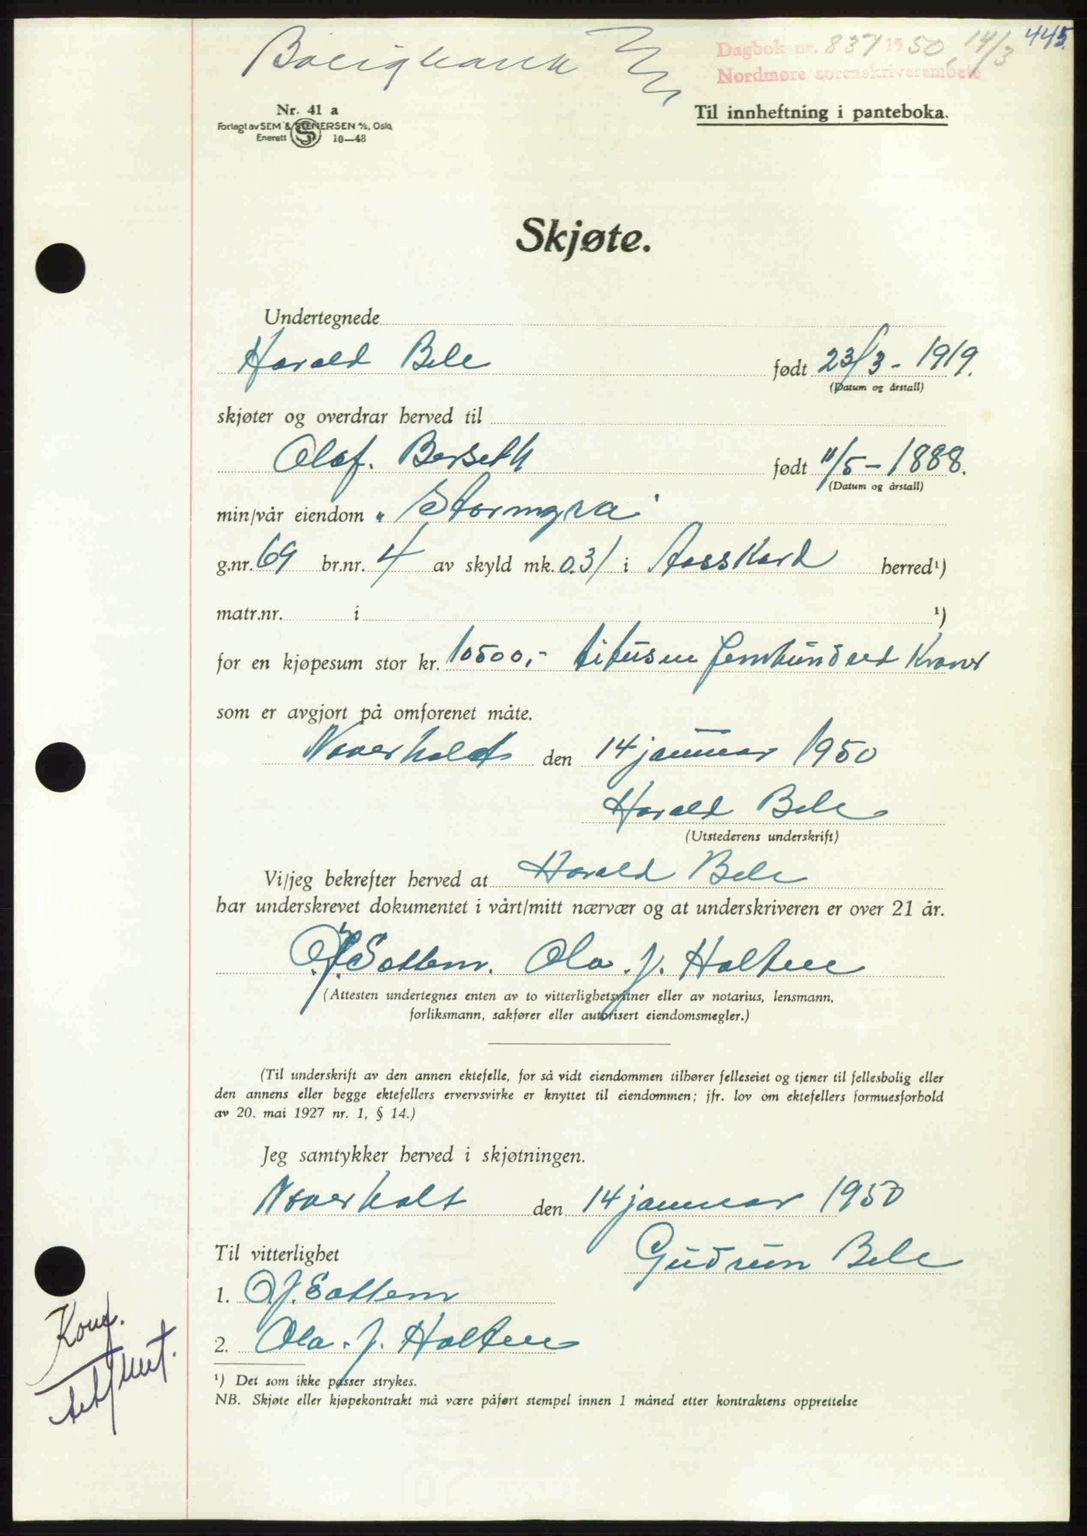 Boligbank
Dagbok nr. 837 1950, 14/3 445
Nordmøre sorenskriverembete
Nr. 41 a
Forlagt av SEM & STENERSEN A/S, Oslo
Enerett 10—48
Til innheftning i panteboka.
Skjøte.
Undertegnede
Harald Bele født 23/3 - 1919.
(Datum og årstall)
skjøter og overdrar herved til
Olaf. Berseth født 11/5 - 1888.
(Datum og årstall)
min/vår eiendom "Stormyra"
g.nr. 69 br.nr. 4 av skyld mk. 0.31 i Aasskard herred¹)
matr.nr. i ¹)
for en kjøpesum stor kr. 10500,- titusen femhundred Kroner
som er avgjort på omforenet måte.
den 14 januar 1950
Harald Bele
(Utstederens underskrift)
Vi/jeg bekrefter herved at Harald Bele
har underskrevet dokumentet i vårt/mitt nærvær og at underskriveren er over 21 år.
O.J. Sottem. Ola. J. Holten
(Attesten undertegnes enten av to vitterlighetsvitner eller av notarius, lensmann,
forliksmann, sakfører eller autorisert eiendomsmegler.)
(Til underskrift av den annen ektefelle, for så vidt eiendommen tilhører felleseiet og tjener til fellesbolig eller
den annens eller begge ektefellers ervervsvirke er knyttet til eiendommen; jfr. lov om ektefellers formuesforhold
av 20. mai 1927 nr. 1, § 14.)
Jeg samtykker herved i skjøtningen.
Noverholt den 14 januar 1950
Til vitterlighet
Gudrun Bele
1. O.J. Sottem
2. Ola. J. Holten
Konf.
¹) Det som ikke passer strykes.
NB. Skjøte eller kjøpekontrakt må være påført stempel innen 1 måned etter kontraktens opprettelse